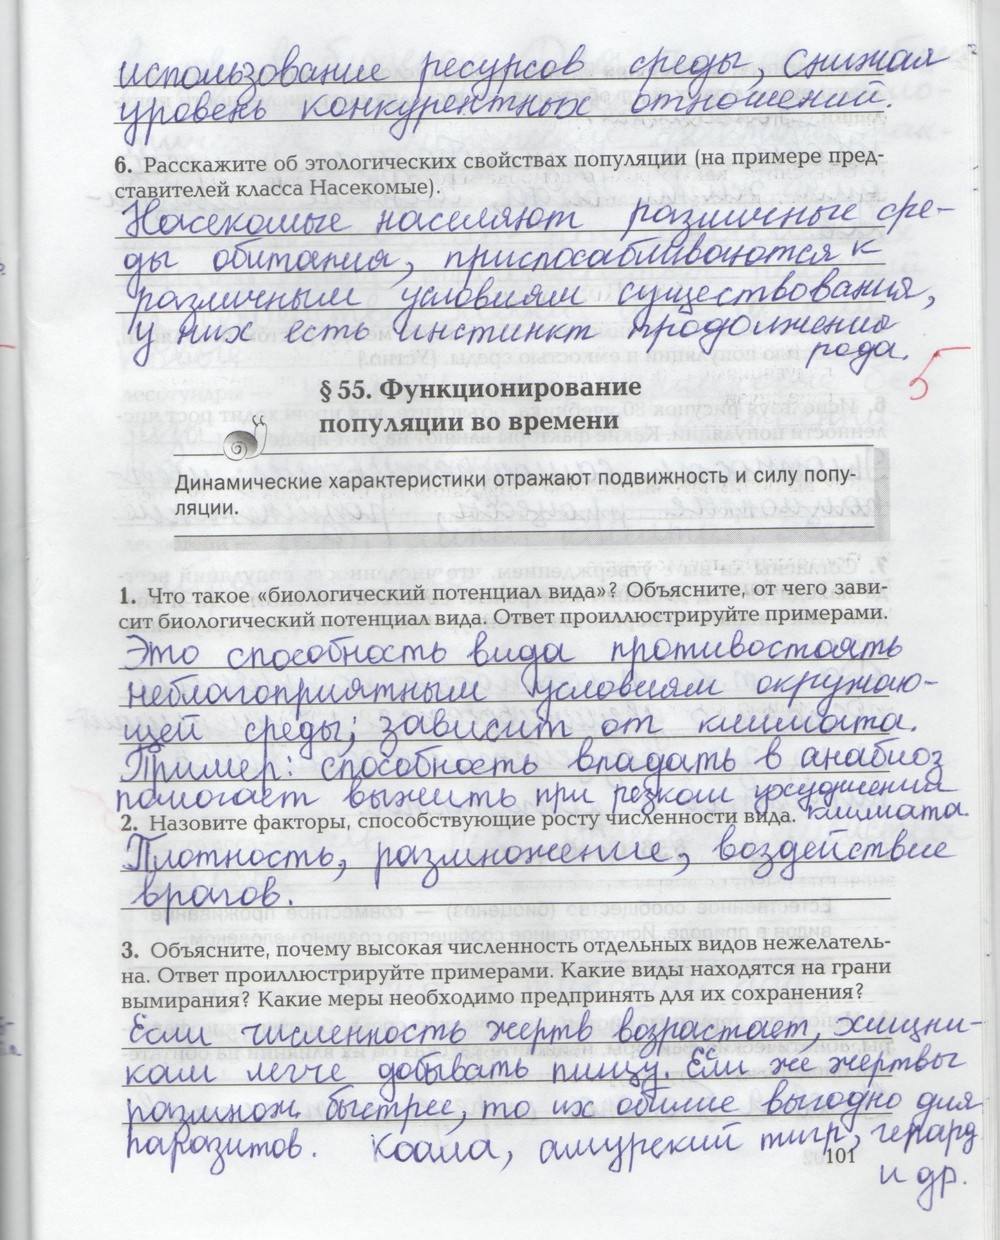 использование ресурсов среды, снижая
уровень конкурентных отношений.
6. Расскажите об этологических свойствах популяции (на примере пред-
ставителей класса Насекомые).
Насекомые населяют различные сре-
ды обитания, приспосабливаются к
различным условиям существования,
у них есть инстинкт продолжения
рода.
5
§ 55. Функционирование
популяции во времени
Динамические характеристики отражают подвижность и силу попу-
ляции.
1. Что такое «биологический потенциал вида»? Объясните, от чего зави-
сит биологический потенциал вида. Ответ проиллюстрируйте примерами.
Это способность вида противостоять
неблагоприятным условиям окружаю-
щей среды; зависит от климата.
Пример: способность впадать в анабиоз
помогает выжить при резком ухудшении
климата.
2. Назовите факторы, способствующие росту численности вида.
Плотность, размножение, воздействие
врагов.
3. Объясните, почему высокая численность отдельных видов нежелатель-
на. Ответ проиллюстрируйте примерами. Какие виды находятся на грани
вымирания? Какие меры необходимо предпринять для их сохранения?
Если численность жертв возрастает, хищни-
кам легче добывать пищу. Если же жертвы
размнож. быстрее, то их обилие выгодно для
паразитов. Коала, амурский тигр, гепард
и др.
101